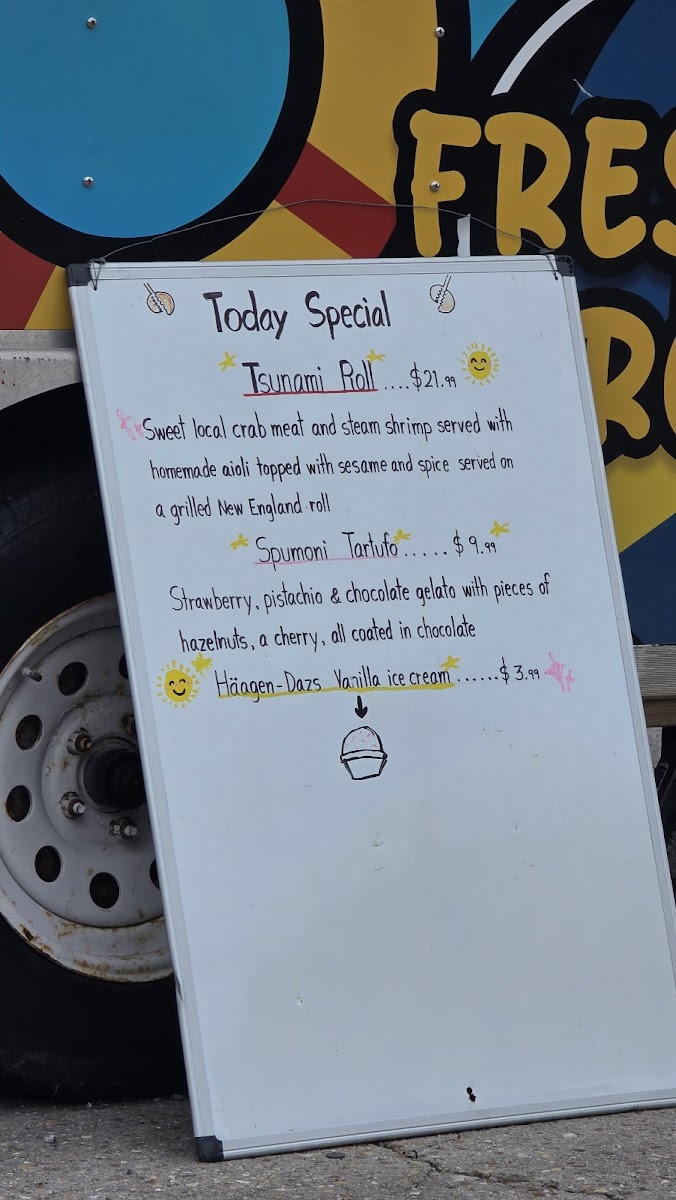 FRES
RO
Today Special
Tsunami Roll ....$21.99
Sweet local crab meat and steam shrimp served with
homemade aioli topped with sesame and spice served on
a grilled New England roll
Spumoni Tartufo..... $9.99
Strawberry, pistachio & chocolate gelato with pieces of
hazelnuts, a cherry, all coated in chocolate
Häagen-Dazs Vanilla ice cream ......$3.99